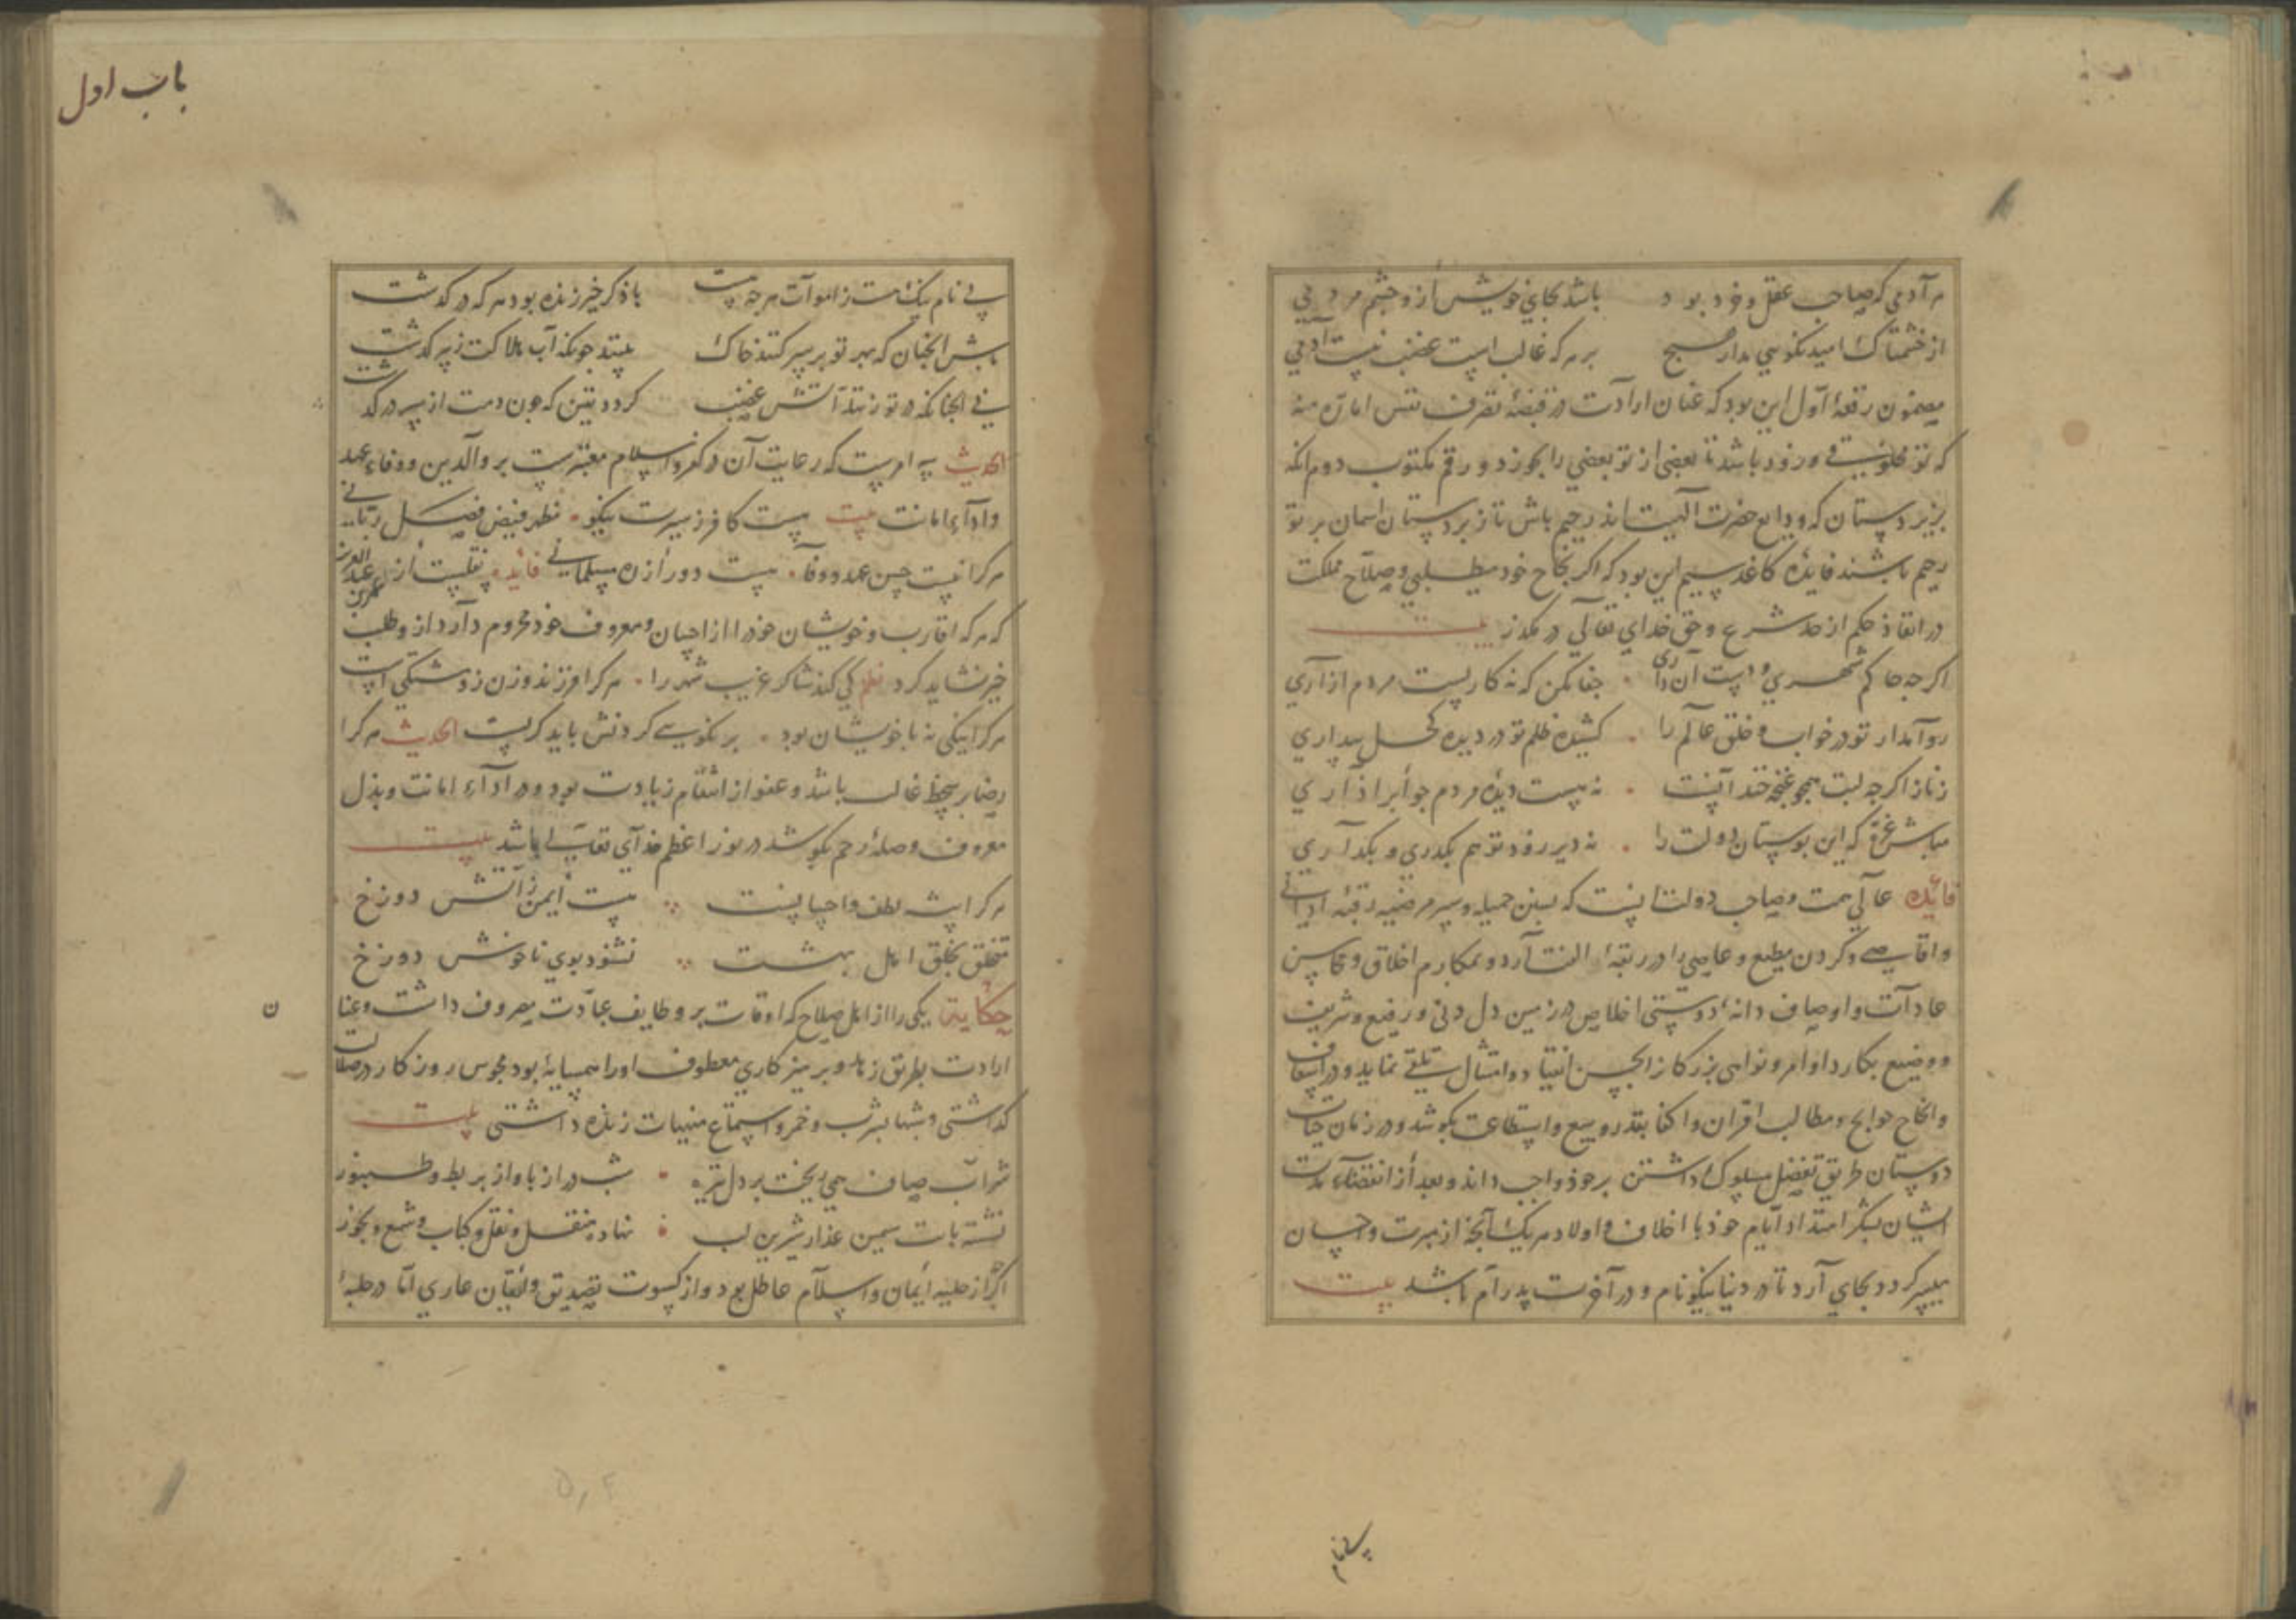 هر آدمی که صاحب عقل و خرد بود باشد بجای خویش از و چشم مردمی
از خشمناک امید نکویی مدار هیچ بر هر که غالب است غضب نیست آدمی
مضمون رقعهٔ اول این بود که عنان ارادت در قبضهٔ تصرف نفس اماره منه
که تو مخلوقی و زود باشد تا بعضی از تو بعضی را بخورد و رقم مکتوب دوم انکه
بزیر دستان که ودایع حضرت الهیت اند رحیم باش تا زبردستان اسمان بر تو
رحیم باشند فایدهٔ کاغذ سیم این بود که اکر نجاح خود میطلبی و صلاح مملکت
در انفاذ حکم از حد شرع و حق خدای تعالی در مکذر بیت
اکر چه حاکم شهری و دست آن داری جفا مکن که نه کاریست مردم ازاری
روا مدار تو در خواب و خلق عالم را کشیده ظلم تو در دیده کحل بیداری
زناز اکرچه لبت همچو غنچه خندانست نه هست دیدهٔ مردم چو أبر اذاری
مباش غره که این بوستان دولت را نه دیر زود تو هم بگذری و بگذاری
فایده عالی همت و صاحب دولت انست که بسنن جمیله و سیر مرضیه رقبهٔ ادانی
و اقاصی و کردن مطیع و عاصی را در ربقهٔ الفت آرد و بمکارم اخلاق و محاسن
عادات و اوصاف دانهٔ دوستی اخلاص در زمین دل دنی و رفیع و شریف
و وضیع بکارد اوامر و نواهی بزرکان را بحسن انقیاد و امتثال تلقی نماید و در اسعاف
و انجاح حوایج و مطالب اقران و اکفا بقدر وسع و استطاعت بکوشد و در زمان حیات
دوستان طریق تفضل مسلوک داشتن بر خود واجب داند و بعد از انقضاء مدت
ایشان بشکر امتداد ایام خود با اخلاف و اولاد هر یک آنچه از مبرت و احسان
میسر کردد بجای آرد تا در دنیا نیکو نام و در آخرت پدرام باشد بیت
باب اول
بی نام نیک هست ز اموات هر چه هست با ذکر خیر زنده بود هر که درکذشت
باش انچنان که بهر تو بر سر کنند خاک بینند چونکه آب هلاکت ز سر کذشت
نی انچنانکه در تو زنند آتش غضب کردد یقین که چون دمت از سر درکذشت
الحدیث سه امرست که رعایت آن در کفر و اسلام معتبرست بر والدین و وفاء عهد
و اداء امانت بیت هست کافر ز سیرت نیکو مظهر فیض فضل ربانی
هر کرا نیست حسن عهد و وفا هست دور از ره مسلمانی فایده نقلیست از عمر بن عبد العزیز
که هر که اقارب و خویشان خود را از احسان و معروف خود محروم دارد از و طلب
خیر نشاید کرد نظم کی کند شاکر غریب شهر را هر کرا فرزند و زن زو شتکی است
هر کرا نیکی نه با خویشان بود بر نکویی کردنش باید کریست الحدیث هر کرا
رضا بر سخط غالب باشد و عفو از انتقام زیادت بود و در اداء امانت و بذل
معروف و صلهٔ رحم بکوشد در نور اعظم خدای تعالی باشد بیت
هر کرا پیشه لطف و احسانست هست أیمن ز آتش دوزخ
متخلق بخلق اهل بهشت نشنود بوی ناخوش دوزخ
حکایة یکی را از اهل صلاح که اوقات بر وظایف عبادت مصروف داشت و عنان
ارادت بطریق زهد و پرهیزکاری معطوف او را همسایهٔ بود مجوس روزکار در ضلالت
کذاشتی و شبها بشرب و خمر و استماع منهیات زنده داشتی بیت
شراب صاف همی ریخت بر دل تیره شب دراز باواز بربط و طنبور
نشسته با بت سیمین عذار شیرین لب نهاده منقل و نقل و کباب و شمع و بخور
اکر از حلیه أیمان و اسلام عاطل بود و از کسوت تصدیق و ایقان عاری اما در حلبهٔ